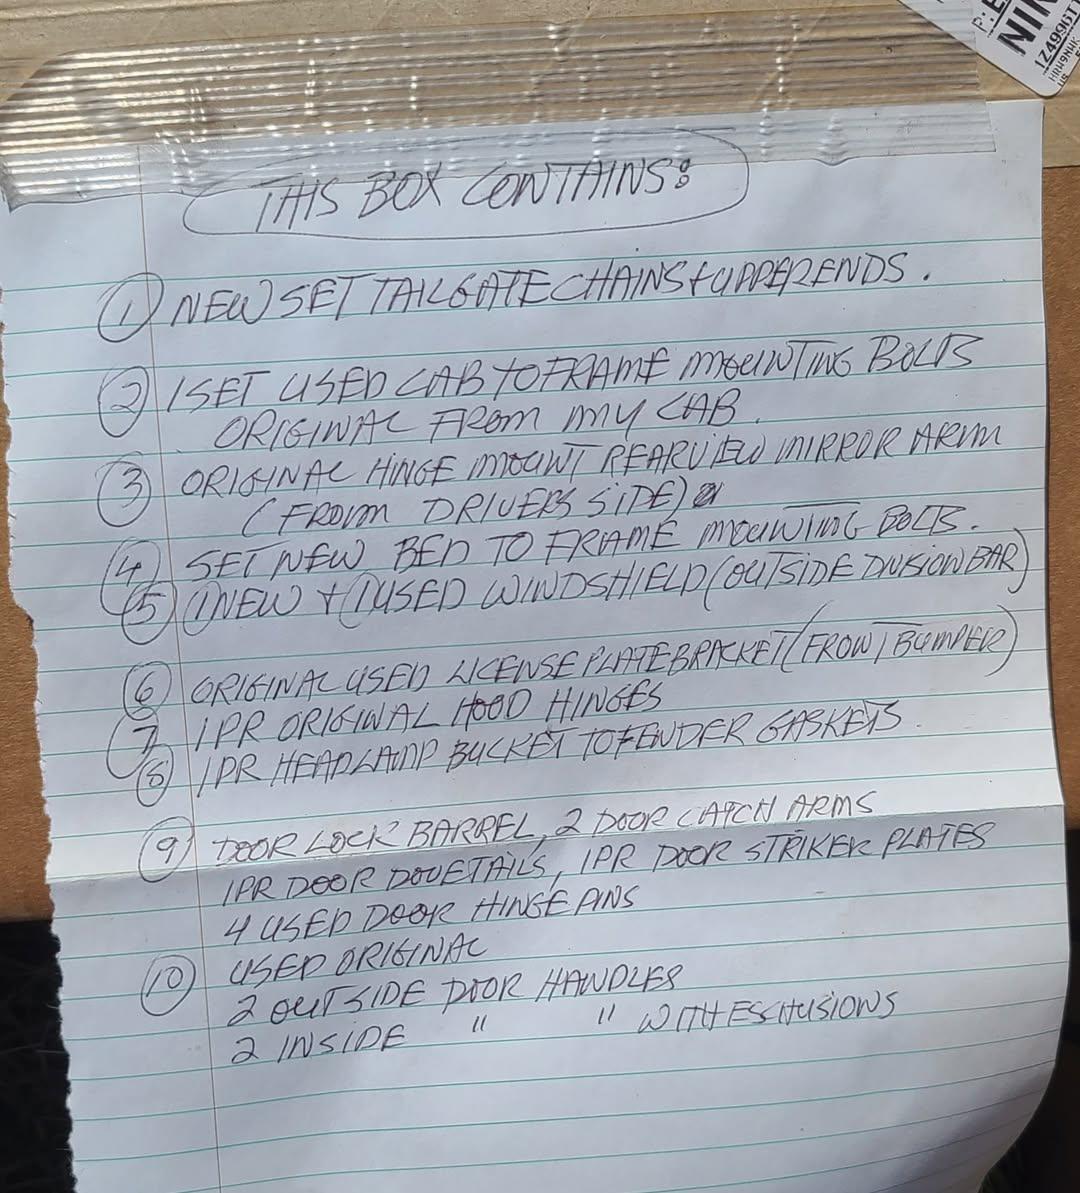 P: E
NIN
1Z4996T1
HRH9NHK
US
THIS BOX CONTAINS:
1 NEW SET TAILGATE CHAINS + UPPER ENDS.
2 1 SET USED CAB TO FRAME MOUNTING BOLTS
ORIGINAL FROM MY CAB.
3 ORIGINAL HINGE MOUNT REARVIEW MIRROR ARM
(FROM DRIVERS SIDE)
4 SET NEW BED TO FRAME MOUNTING BOLTS.
5 1 NEW + 1 USED WINDSHIELD (OUTSIDE DIVISION BAR)
6 ORIGINAL USED LICENSE PLATE BRACKET (FRONT BUMPER)
7 1 PR ORIGINAL HOOD HINGES
8 1 PR HEADLAMP BUCKET TO FENDER GASKETS.
9 DOOR LOCK BARREL, 2 DOOR CATCH ARMS
1 PR DOOR DOVETAILS, 1 PR DOOR STRIKER PLATES
4 USED DOOR HINGE PINS
10 USED ORIGINAL
2 OUTSIDE DOOR HANDLES
2 INSIDE " " WITH ESCHUSIONS